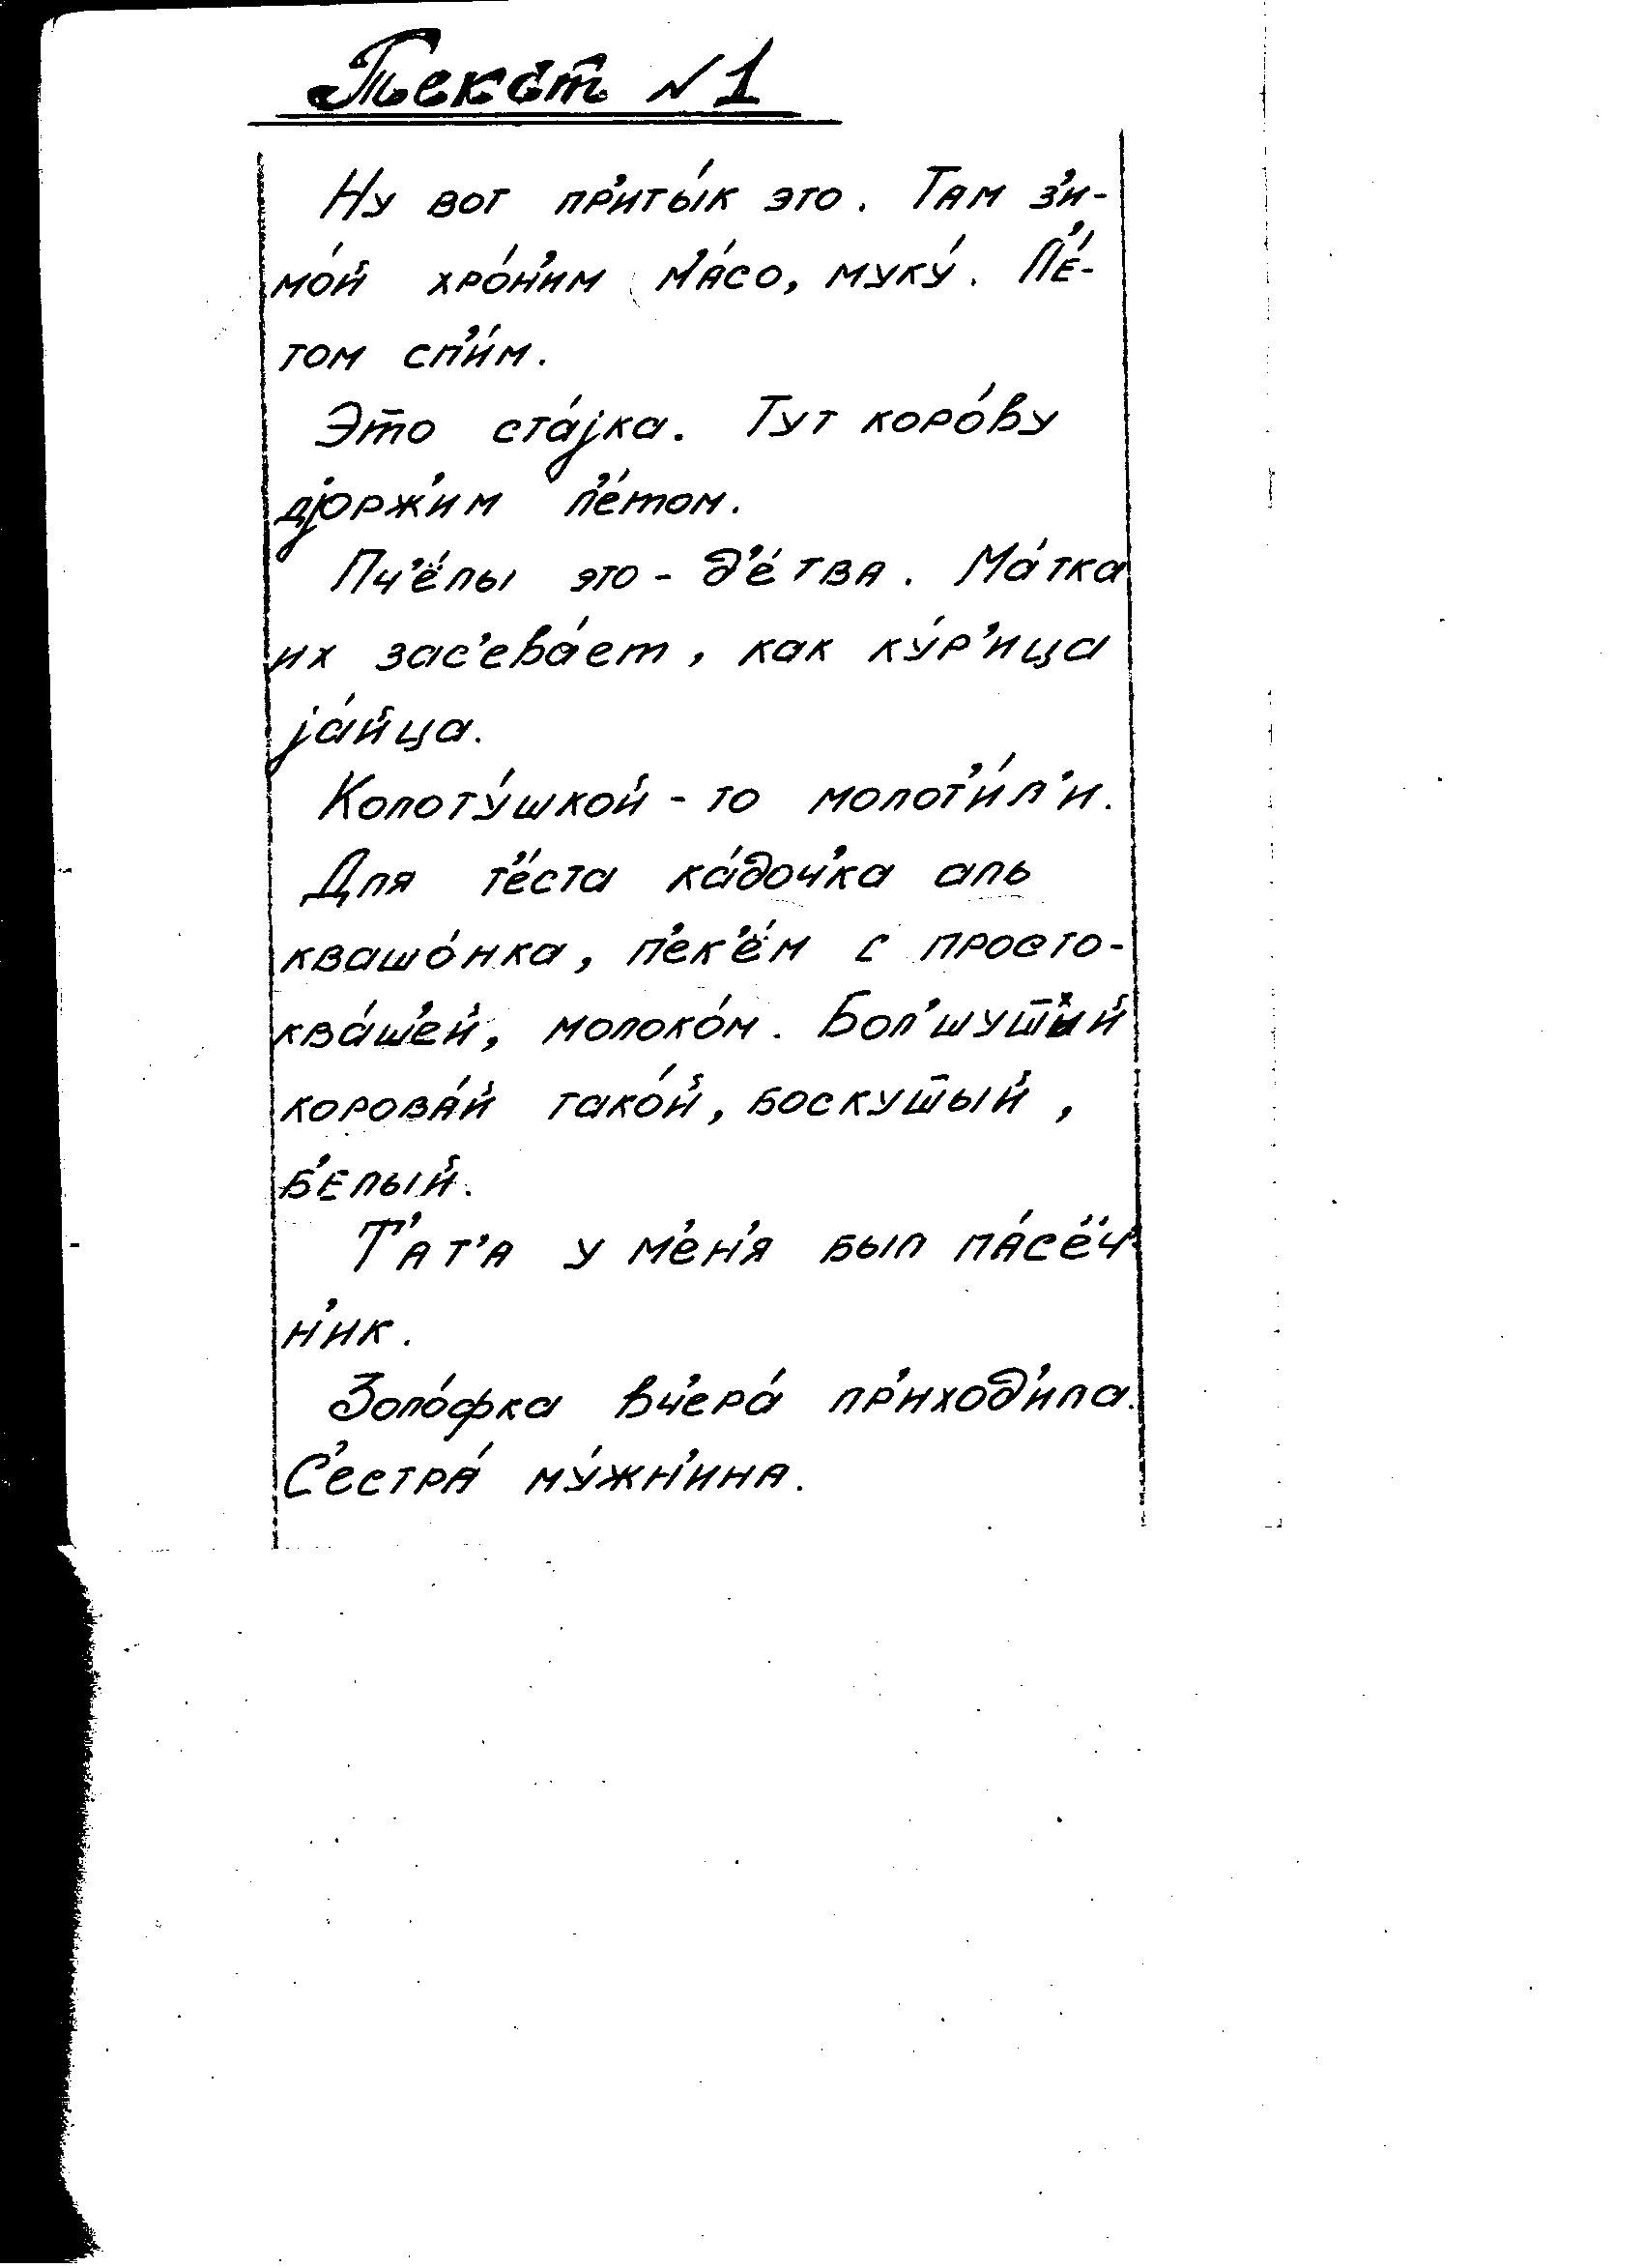 Текст № 1
Ну вот пр'иты́к это. Там з'и-
мо́й хро́н'им м'а́со, муку́. Л'е́-
том сп'и́м.
Это ста́jка. Тут коро́ву
дjорж'им л'е́том.
Пч'ёлы это - д'е́тва. Ма́тка
их зас'ева́ет, как ку́р'ица
jа́йца.
Колоту́шкой - то молот'и́л'и.
Для т'е́ста ка́доч'ка аль
квашо́нка, п'ек'е́м с просто-
ква́ш'ей, молоко́м. Бол'шуш̅ий
корова́й тако́й, боскуш̅ый,
б'елый.
Т'ат'а у м'ен'я был па́сеч'
н'ик.
Золо́фка вч'ера́ пр'иход'ила.
С'естра́ му́жн'ина.